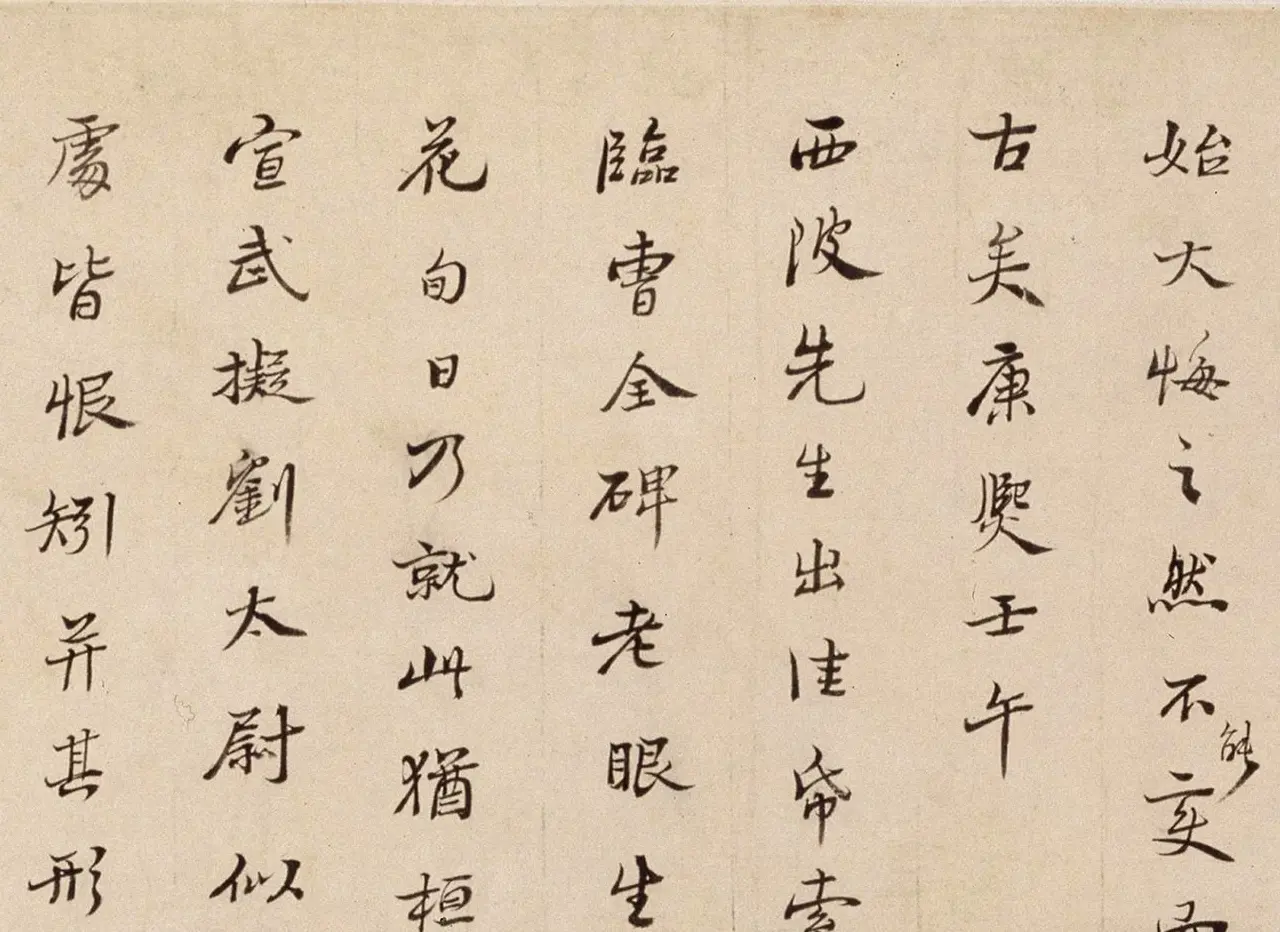 始大悔之然不能变
古矣康熙壬午
西陂先生出佳帋索
臨曹全碑老眼生
花旬日乃就此猶桓
宣武擬劉太尉似
處皆恨矧并其形